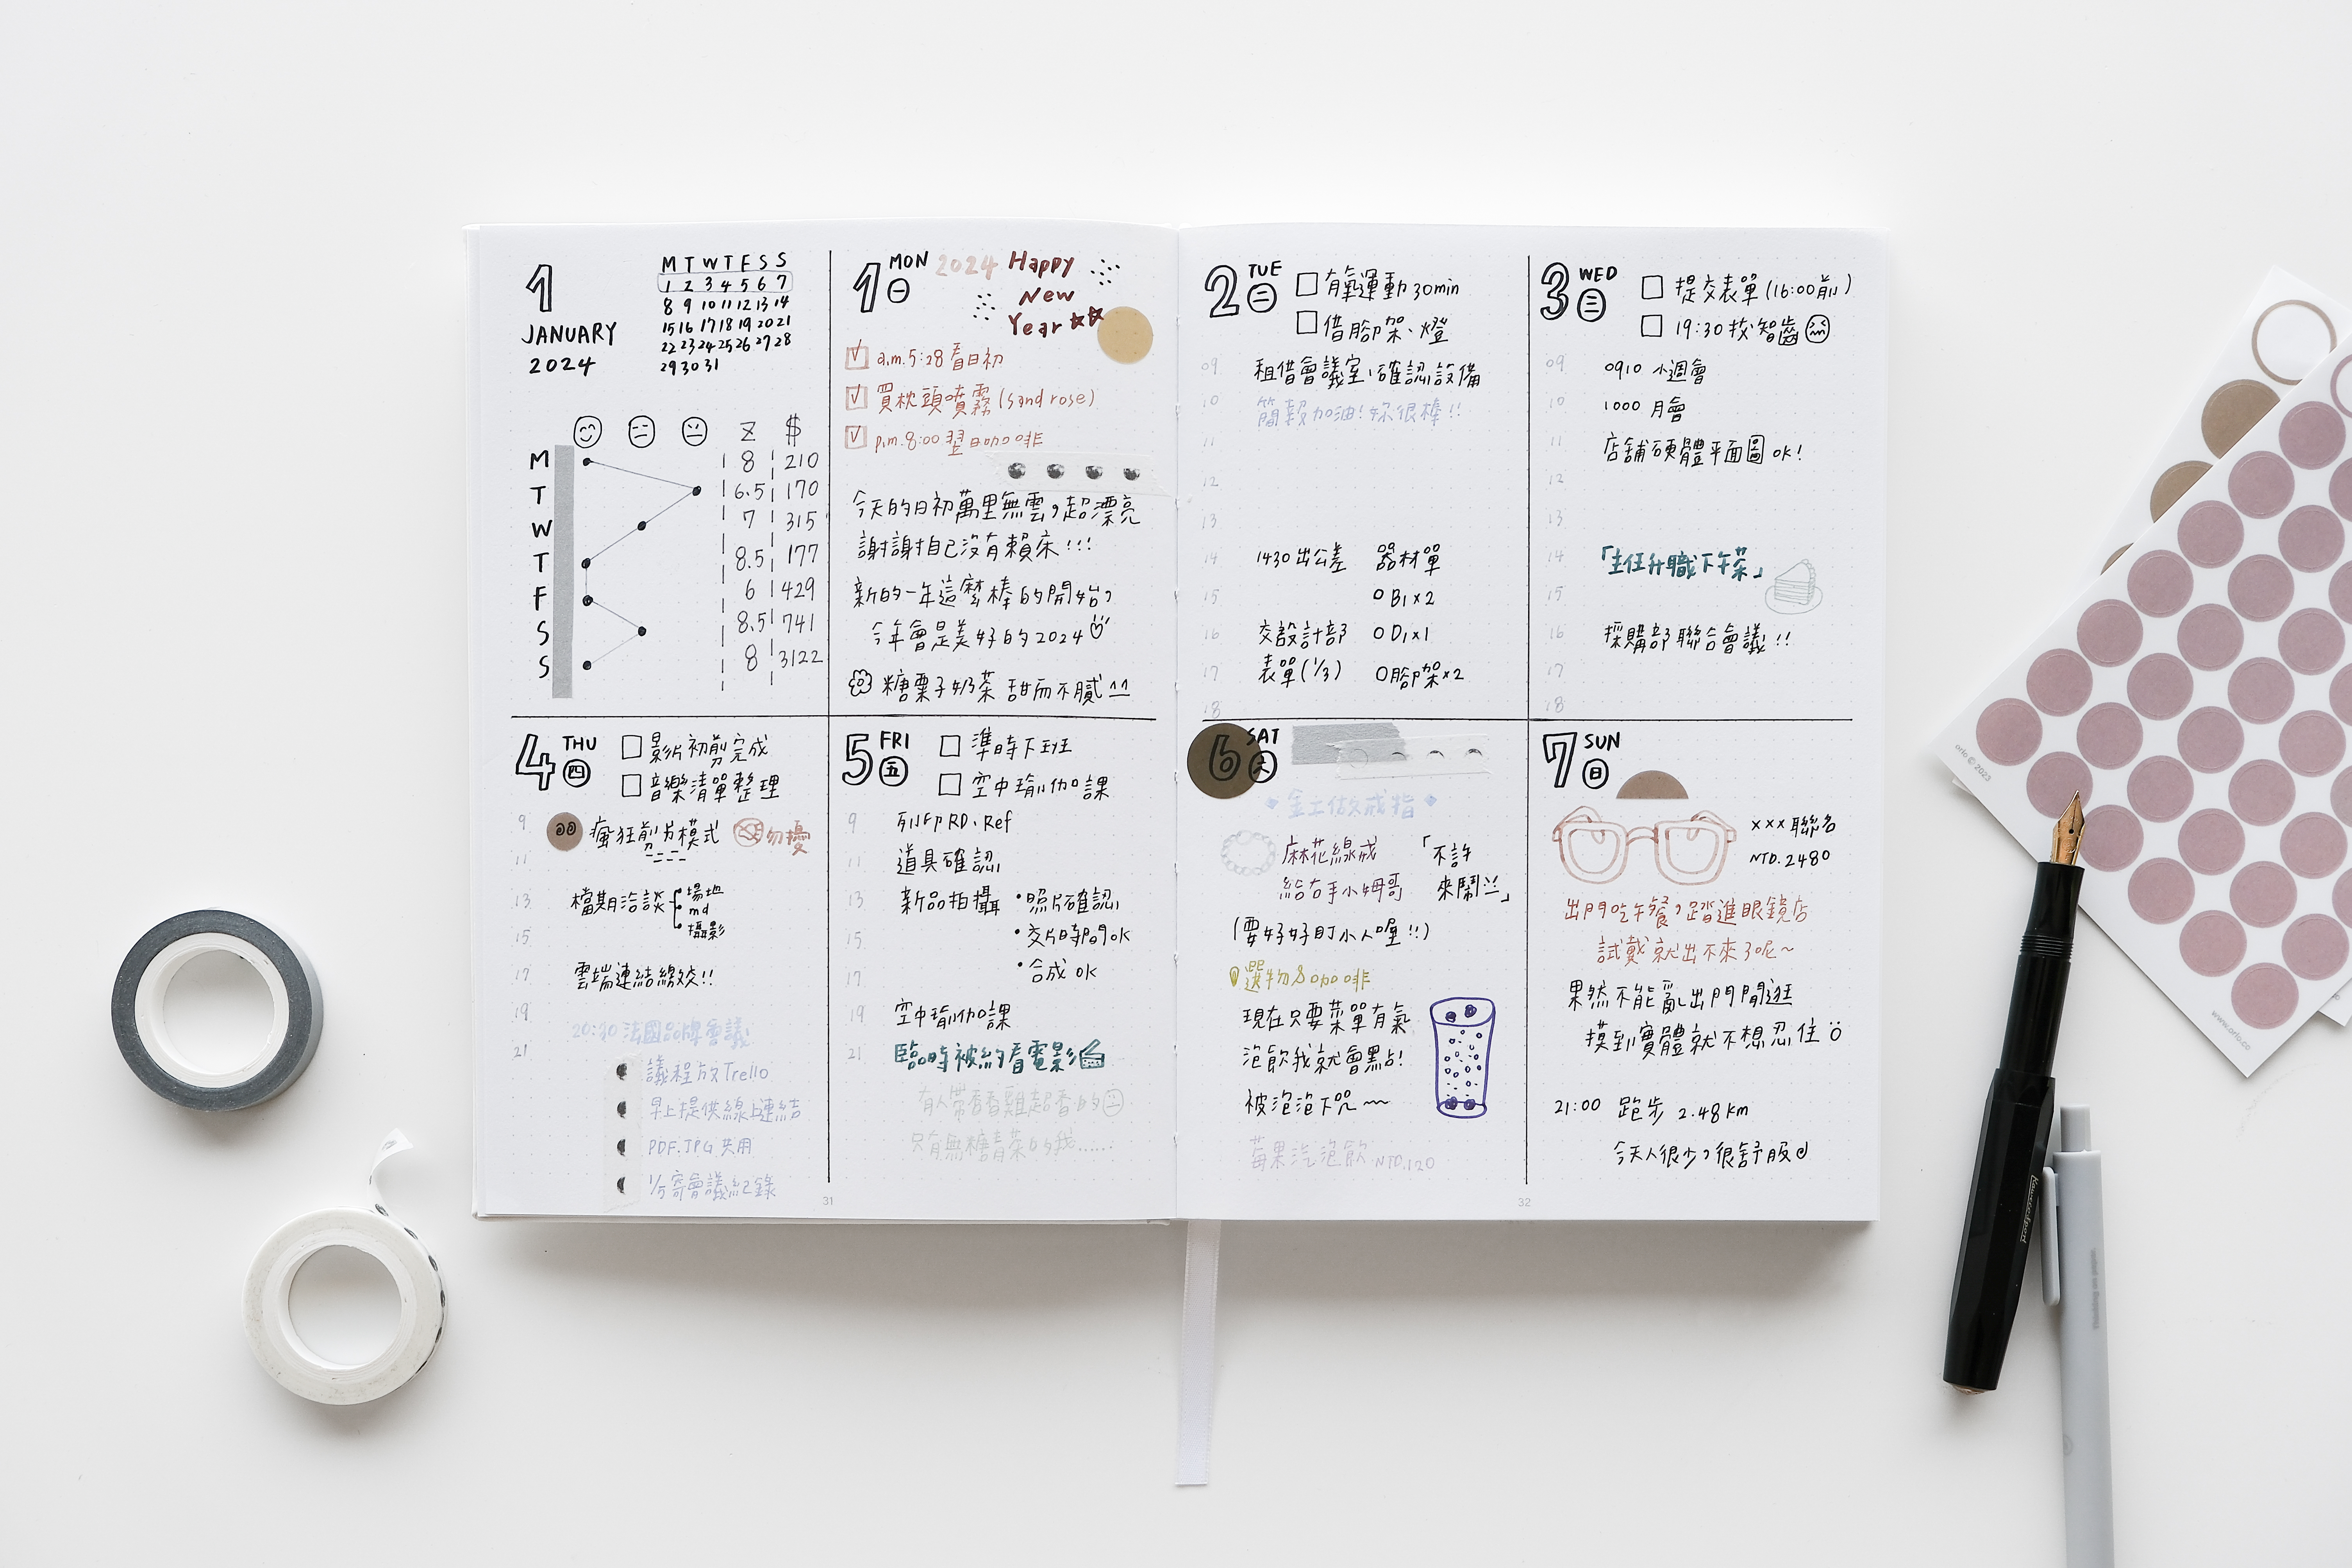 1
JANUARY
2024
M T W T F S S
1 2 3 4 5 6 7
8 9 10 11 12 13 14
15 16 17 18 19 20 21
22 23 24 25 26 27 28
29 30 31
Z $
M 8 210
T 6.5 170
W 7 315
T 8.5 177
F 6 429
S 8.5 741
S 8 3122
1 MON 一
2024 Happy
New
Year
a.m.5:28 看日初
買枕頭噴霧 (sand rose)
p.m.8:00 翌日咖啡
今天的日初萬里無雲，超漂亮
謝謝自己沒有賴床!!!
新的一年這麼棒的開始，
今年會是美好的2024
糖栗子奶茶 甜而不膩^^
2 TUE 二
有氧運動 30min
借腳架、燈
09 租借會議室、確認設備
10 簡報加油!妳很棒!!
11
12
13
14 1430 出公差 器材單
15 B1×2
16 交設計部 D1×1
17 表單(1/3) 腳架×2
18
3 WED 三
提交表單(16:00前)
19:30 拔智齒
09 0910 小週會
10 1000 月會
11 店舖硬體平面圖 ok!
12
13
14 「主任升職下午茶」
15
16 採購部聯合會議!!
17
18
4 THU 四
影片初剪完成
音樂清單整理
9 瘋狂剪片模式 勿擾
11
13 檔期洽談 場地
md
攝影
15
17 雲端連結繳交!!
19
20:30 法國品牌會議
21
議程放Trello
早上提供線上連結
PDF.JPG 共用
1/5寄會議紀錄
5 FRI 五
準時下班
空中瑜伽課
9 列印RD、Ref
11 道具確認
13 新品拍攝 •照片確認
15 •交片時間ok
17 •合成 ok
19 空中瑜伽課
21 臨時被約看電影
有人帶香香雞超香的
只有無糖青茶的我......
31
6 SAT 六
金工做戒指
麻花線戒 「不許
給右手小姆哥 來鬧!!」
(要好好盯小人喔!!)
選物&咖啡
現在只要菜單有氣
泡飲我就會點!
被泡泡下咒~
莓果汽泡飲 NTD.120
7 SUN 日
×××聯名
NTD.2480
出門吃午餐，踏進眼鏡店
試戴就出不來了呢~
果然不能亂出門閒逛
摸到實體就不想忍住
21:00 跑步 2.48km
今天人很少，很舒服
32
orlo © 2023
www.orlo.co
Kaweco Sport